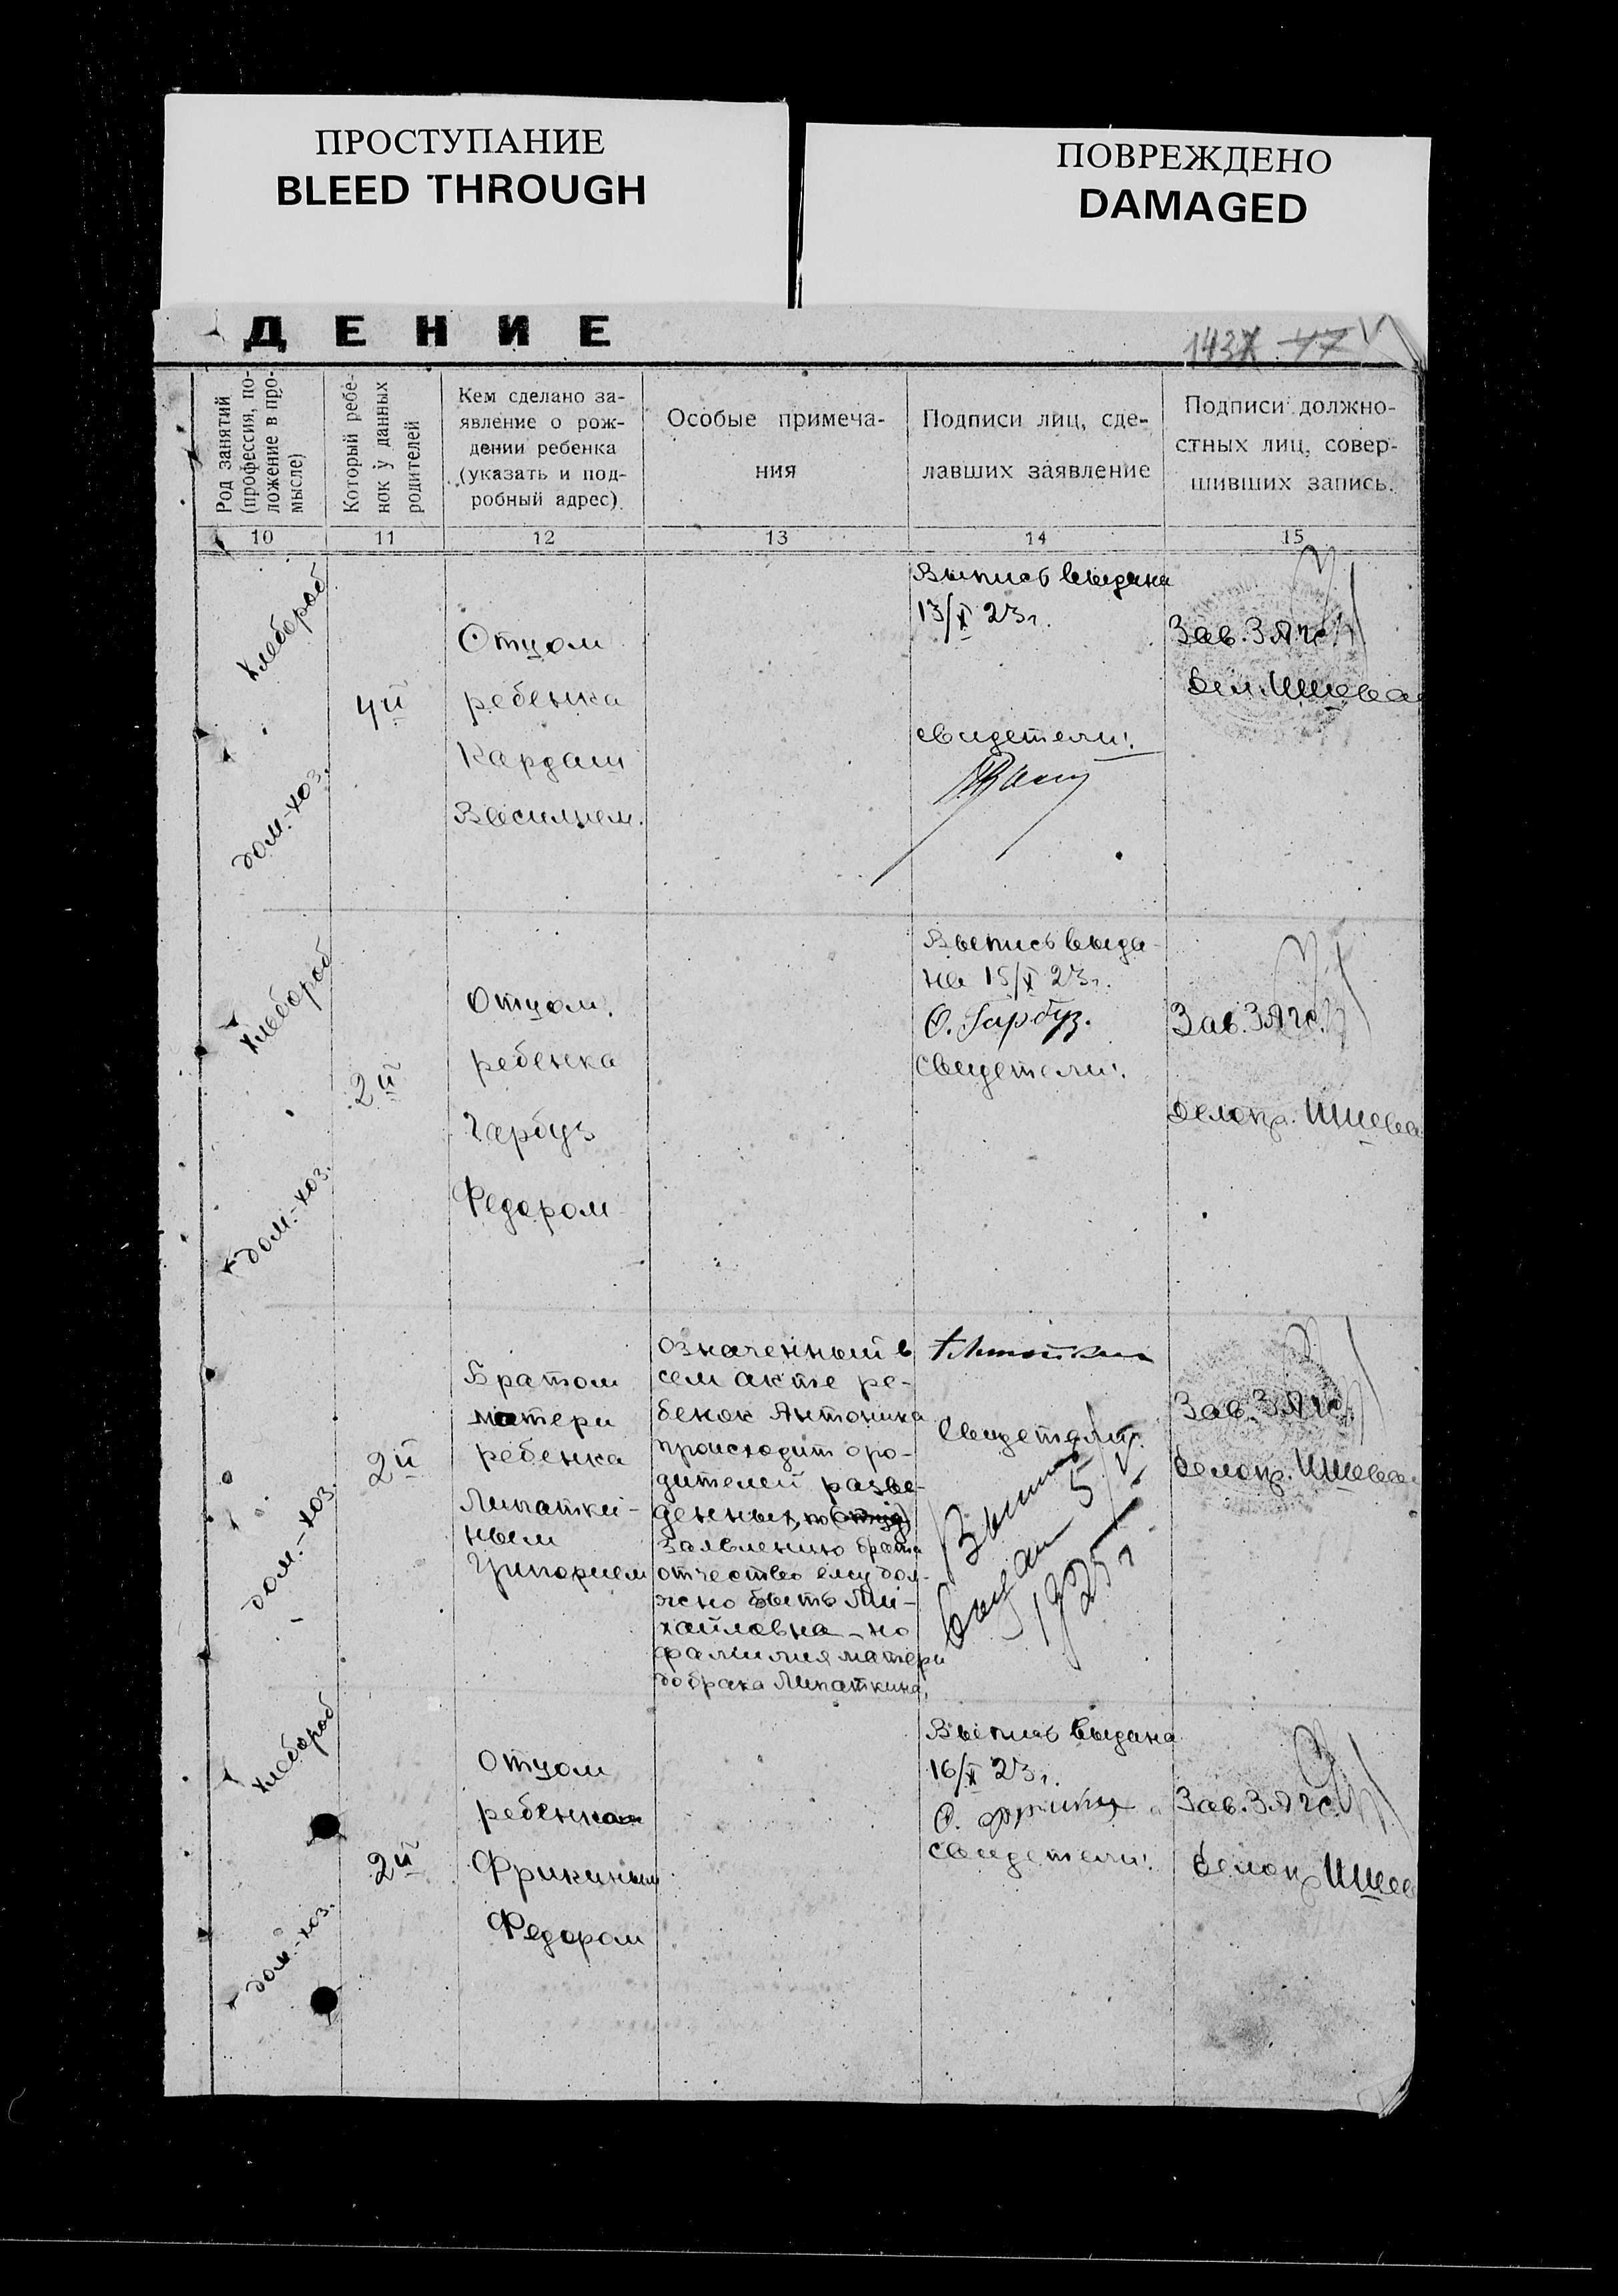 ПРОСТУПАНИЕ
BLEED THROUGH
ПОВРЕЖДЕНО
DAMAGED
ДЕНИЕ
143
Род занятий
(профессия, по-
ложение в про-
мысле)
Который ребе-
нок у данных
родителей
Кем сделано за-
явление о рож-
дении ребенка
(указать и под-
робный адрес).
Особые примеча-
ния
Подписи лиц, сде-
лавших заявление
Подписи должно-
стных лиц, совер-
шивших запись.
10
11
12
13
14
15
хлебороб
дом.-хоз.
4й
Отцом
ребенка
Кардаш
Василием.
Выпись выдана
13/X 23г.
свидетели:
Зав. ЗАГС.
хлебороб
дом.-хоз.
2й
Отцом.
ребенка
Гарбуз
Федором
Выпись выда-
на 15/X 23г.
Ф. Гарбуз.
Свидетели:
Зав. ЗАГС.
делопр.
дом.-хоз.
2й
Братом
матери
ребенка
Липатки-
ным
Григорием
Означенный в
сем акте ре-
бенок Антонина
происходит от ро-
дителей разве-
денных, по
заявлению брата
отчество ему дол-
жно быть Ми-
хайловна - но
фамилия матери
до брака Липаткина,
Свидетели:
выдан 5/V
1925 г
Зав. ЗАГС.
делопр.
хлебороб
дом.-хоз.
2й
Отцом
ребенка
Фрикиным
Федором
Выпись выдана
16/X 23г.
Ф.
свидетели:
Зав. ЗАГС.
делопр.